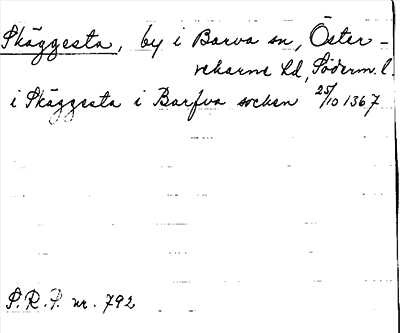 Skäggesta, by i Barva sn, Öster-
rekarne hd, Söderm. l.
i Skäggesta i Barfva socken 25/10 1367
S.R.P. nr. 792